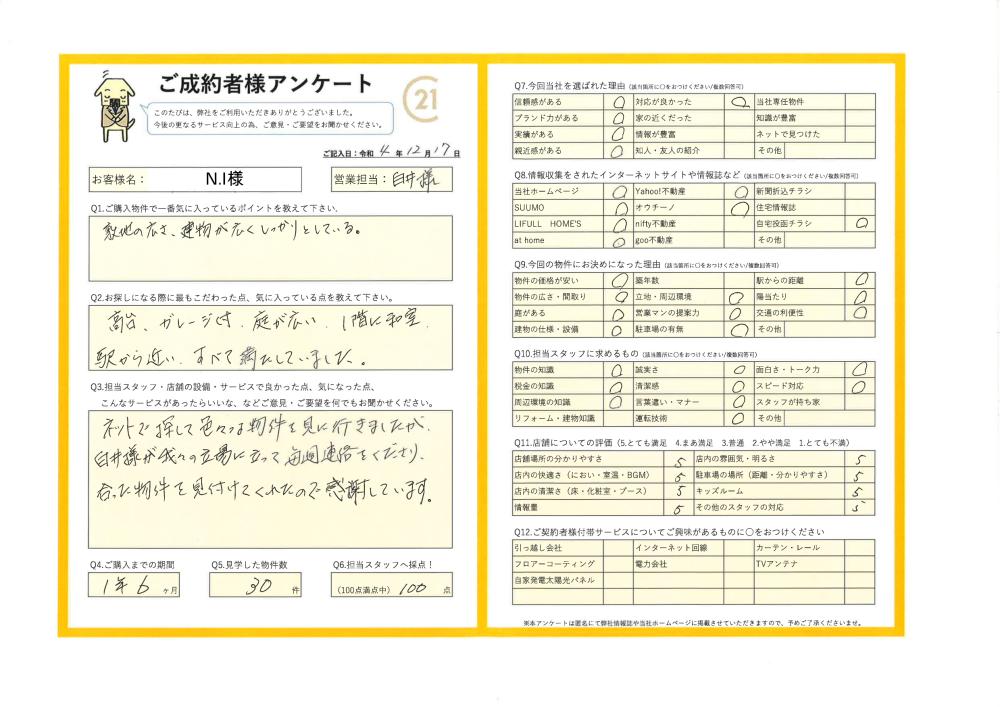 ご成約者様アンケート
21
このたびは、弊社をご利用いただきありがとうございました。
今後の更なるサービス向上の為、ご意見・ご要望をお聞かせください。
ご記入日：令和 4 年 12 月 17 日
お客様名： N.I様
営業担当： 臼井様
Q1.ご購入物件で一番気に入っているポイントを教えて下さい。
敷地の広さ、建物が広くしっかりとしている。
Q2.お探しになる際に最もこだわった点、気に入っている点を教えて下さい。
高台、ガレージ付、庭が広い、1階に和室、
駅から近い、すべて満たしていました。
Q3.担当スタッフ・店舗の設備・サービスで良かった点、気になった点、
こんなサービスがあったらいいな、などご意見・ご要望を何でもお聞かせください。
ネットで探して色々な物件を見に行きましたが、
臼井様が我々の立場に立って毎回連絡をくださり、
合った物件を見付けてくれたので感謝しています。
Q4.ご購入までの期間
1年6 ヶ月
Q5.見学した物件数
30 件
Q6.担当スタッフへ採点！
(100点満点中) 100 点
Q7.今回当社を選ばれた理由 (該当箇所に○をおつけください/複数回答可)
信頼感がある ○ 対応が良かった ○ 当社専任物件
ブランド力がある ○ 家の近くだった 知識が豊富
実績がある ○ 情報が豊富 ネットで見つけた
親近感がある ○ 知人・友人の紹介 その他
Q8.情報収集をされたインターネットサイトや情報誌など (該当箇所に○をおつけください/複数回答可)
当社ホームページ ○ Yahoo!不動産 ○ 新聞折込チラシ
SUUMO ○ オウチーノ ○ 住宅情報誌
LIFULL HOME'S ○ nifty不動産 自宅投函チラシ ○
at home ○ goo不動産 その他
Q9.今回の物件にお決めになった理由 (該当箇所に○をおつけください/複数回答可)
物件の価格が安い ○ 築年数 駅からの距離 ○
物件の広さ・間取り ○ 立地・周辺環境 ○ 陽当たり ○
庭がある ○ 営業マンの提案力 ○ 交通の利便性 ○
建物の仕様・設備 ○ 駐車場の有無 ○ その他
Q10.担当スタッフに求めるもの (該当箇所に○をおつけください/複数回答可)
物件の知識 ○ 誠実さ ○ 面白さ・トーク力 ○
税金の知識 ○ 清潔感 ○ スピード対応 ○
周辺環境の知識 ○ 言葉遣い・マナー ○ スタッフが持ち家
リフォーム・建物知識 運転技術 ○ その他
Q11.店舗についての評価 (5.とても満足 4.まあ満足 3.普通 2.やや満足 1.とても不満)
店舗場所の分かりやすさ 5 店内の雰囲気・明るさ 5
店内の快適さ（におい・室温・BGM） 5 駐車場の場所（距離・分かりやすさ） 5
店内の清潔さ（床・化粧室・ブース） 5 キッズルーム 5
情報量 5 その他のスタッフの対応 5
Q12.ご契約者様付帯サービスについてご興味があるものに○をおつけください
引っ越し会社 インターネット回線 カーテン・レール
フロアーコーティング 電力会社 TVアンテナ
自家発電太陽光パネル
※本アンケートは匿名にて弊社情報誌や当社ホームページに掲載させていただきますので、予めご了承くださいませ。